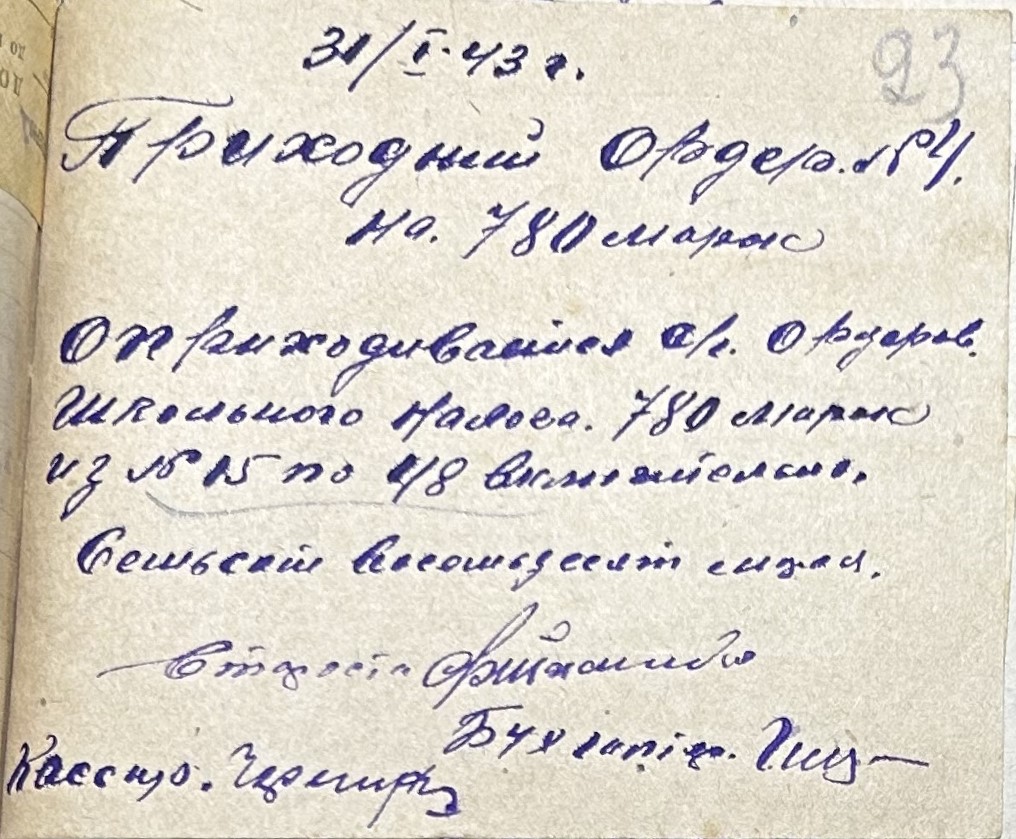 31/I-43 г.
23
Приходний Ордер. № 4.
На. 780 марок
Оприходивается с/г. Ордеров.
Школьного Налога. 780 марок
из № 15 по 48 включительно.
Семьсот восемьдесят марок.
Староста
Бухгалтер.
Кассир.